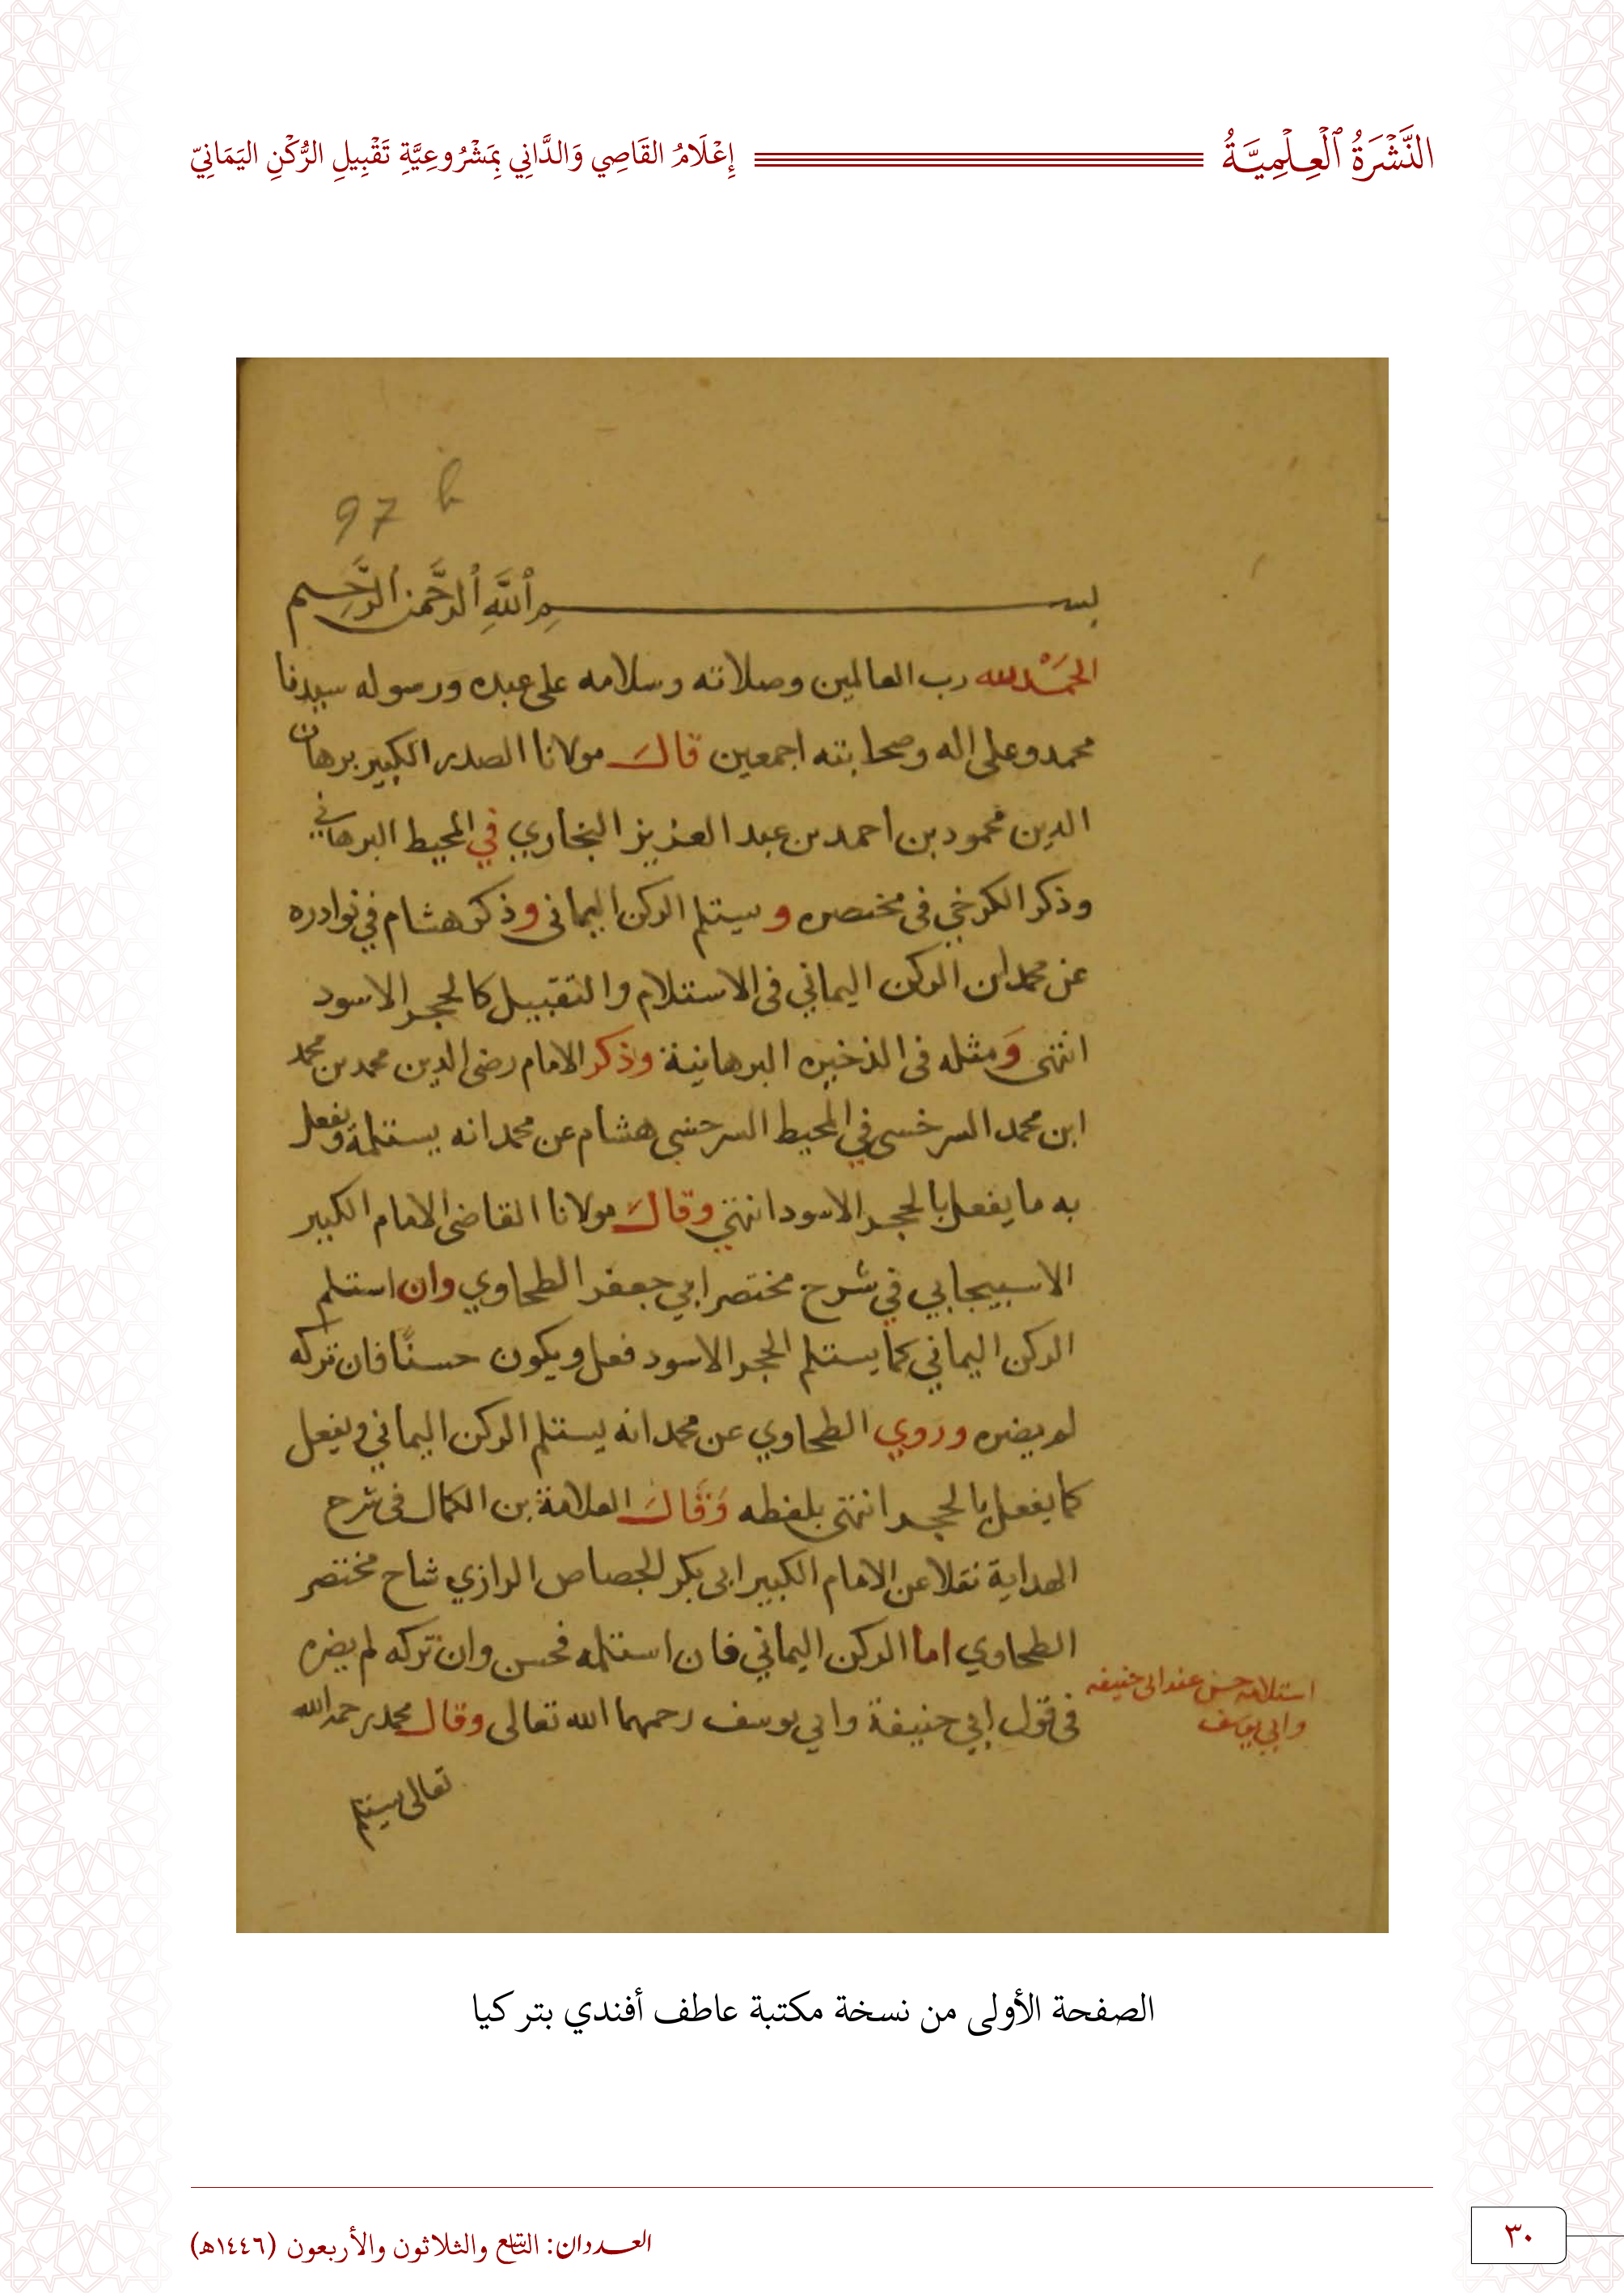 النَّشْرَةُ ٱلْعِلْمِيَّةُ
إِعْلَامُ القَاصِي وَالدَّانِي بِمَشْرُوعِيَّةِ تَقْبِيلِ الرُّكْنِ اليَمَانِيّ
97 b
بسم ٱللَّهِ ٱلرَّحْمن ٱلرَّحِيم
الحَمْدلله رب العالمين وصلاته وسلامه على عبده ورسوله سيدنا
محمد وعلى اله وصحابته اجمعين قال مولانا الصدر الكبير برهان
الدين محمود بن احمد بن عبد العزيز البخاري في المحيط البرهاني
وذكر الكرخي في مختصره ويستلم الركن اليماني وذكر هشام في نوادره
عن محمد ان الركن اليماني في الاستلام والتقبيل كالحجر الاسود
انتهى وَمثله في الذخيره البرهانية وذكر الامام رضى الدين محمد بن محمد
ابن محمد السرخسى في المحيط السرخسي هشام عن محمد انه يستلمة ويفعل
به ما يفعل بالحجر الاسود انتهى وقالَ مولانا القاضى الامام الكبير
الاسبيجابي في شرح مختصر ابي جعفر الطحاوي وان استلم
الركن اليماني كما يستلم الحجر الاسود فعل ويكون حسنًا فان تركه
لم يضره وروي الطحاوي عن محمد انه يستلم الركن اليماني ويفعل
كما يفعل بالحجر انتهى بلفظه وَقَالَ العلامة بن الكمال في شرح
الهداية نقلا عن الامام الكبير ابى بكر الجصاص الرازي شاح مختصر
الطحاوي اما الركن اليماني فان استلمه فحسن وان تركه لم يضره
في قول ابي حنيفة وابي يوسف رحمهما الله تعالى وقال محمد رحمه الله
تعالى يستلم
استلامه حسن عند ابى حنيفه
وابي يوسف
الصفحة الأولى من نسخة مكتبة عاطف أفندي بتركيا
العددان: التاسع والثلاثون والأربعون (١٤٤٦هـ)
٣٠